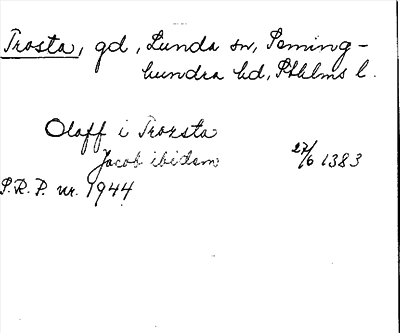 Trosta, gd, Lunda sn, Seming-
hundra hd, Sthlms l.
Olaff i Trorsta
Jacob ibidem 27/6 1383
S.R.P. nr. 1944